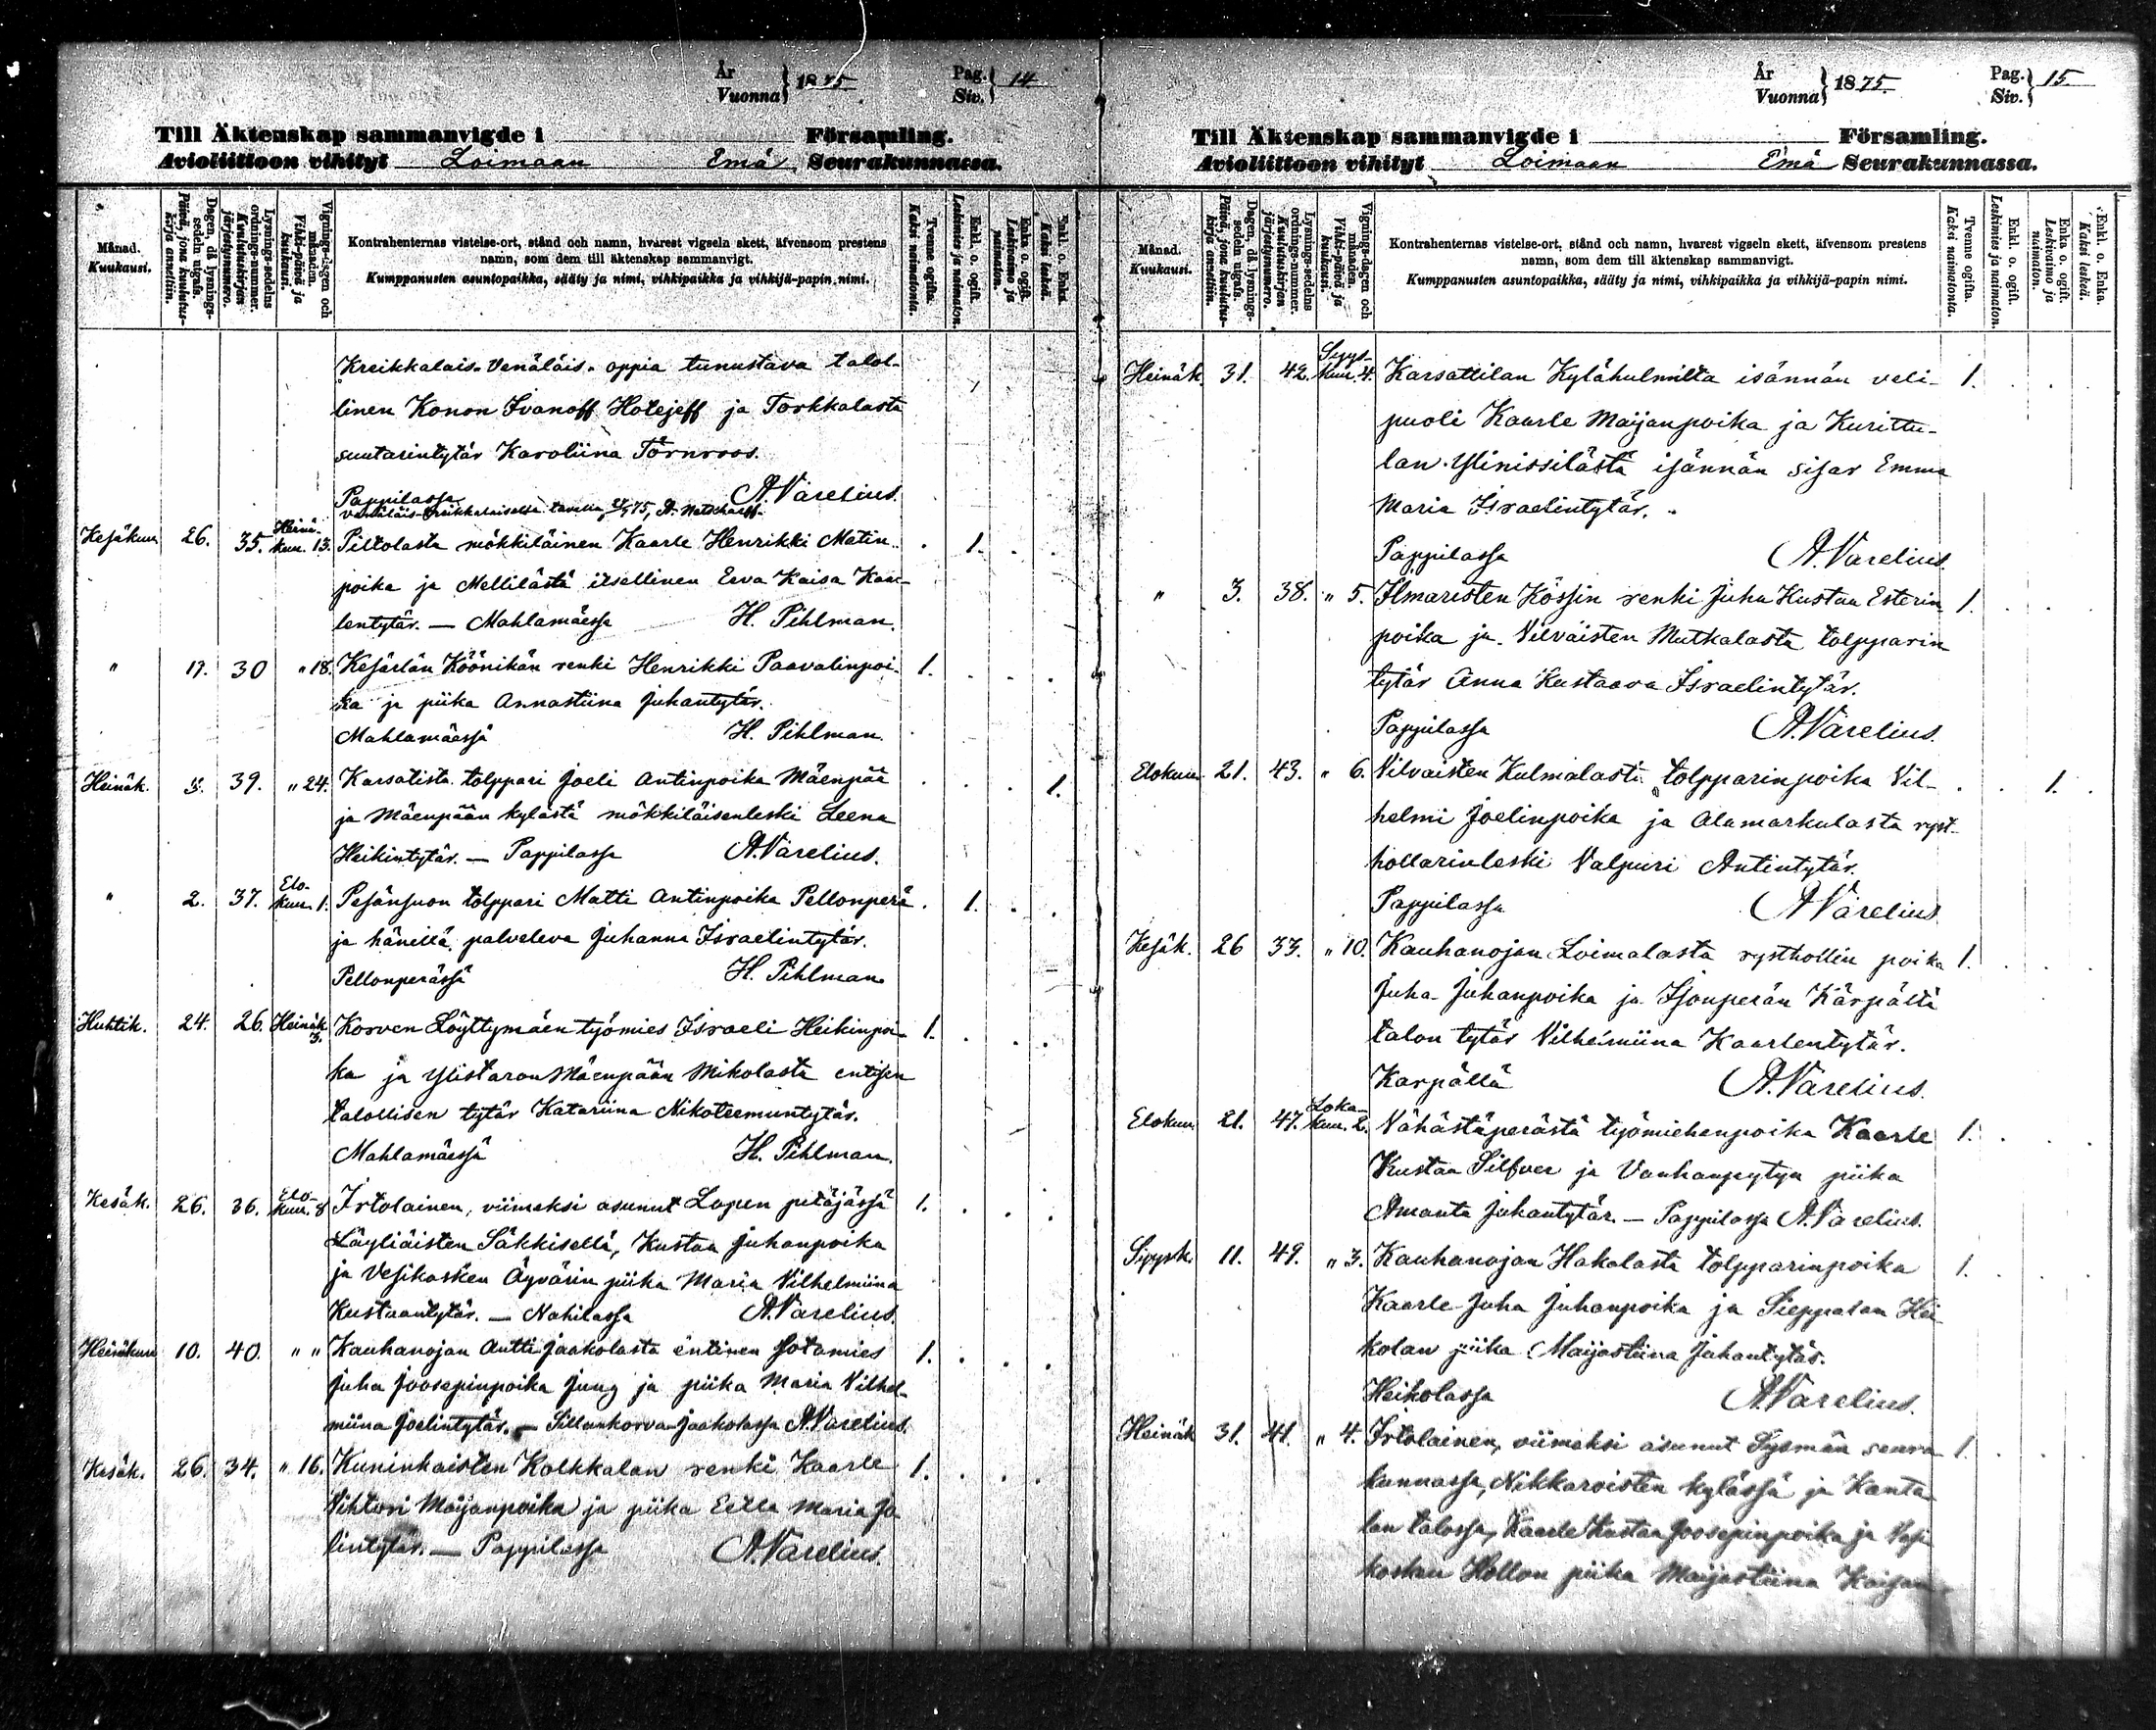 År
Vuonna } 1875
Pag.
Siv. } 14
Till Äktenskap sammanvigde i Församling.
Avioliittoon vihityt Loimaan Emä Seurakunnassa.
Månad.
Kuukausi.
Dagen, då lysnings-sedeln utgafs.
Päivä, jona kuulutus-kirja annettiin.
Lysnings-sedelns ordnings-nummer.
Kuulutuskirjan järjestysnumero.
Vignings-dagen och månaden.
Vihki-päivä ja kuukausi.
Kontrahenternas vistelse-ort, stånd och namn, hvarest vigseln skett, äfvensom prestens
namn, som dem till äktenskap sammanvigt.
Kumppanusten asuntopaikka, sääty ja nimi, vihkipaikka ja vihkijä-papin nimi.
Tvenne ogifta.
Kaksi naimatonta.
Enkl. o. ogift.
Leskimies ja naimaton.
Enka o. ogift.
Leskivaimo ja naimaton.
Enkl. o. Enka.
Kaksi leskeä.
Kreikkalais-Venäläis- oppia tunnustava talol-
linen Konon Ivanoff Hotejeff ja Torkkalasta
suutarintytär Karoliina Törnroos.
Pappilassa A. Varelius.
Kesäkuu 26. 35. Heinä-kuu. 13. Piltolasta mökkiläinen Kaarle Henrikki Matin- 1.
poika ja Mellilästä itsellinen Eeva Kaisa Kaar-
lentytär. — Mahlamäessä H. Pihlman.
" 19. 30 " 18. Kesärlän Köönikän renki Henrikki Paavalinpoi- 1.
ka ja piika Annastiina Juhantytär.
Mahlamäessä H. Pihlman.
Heinäk. 3. 39. " 24. Karsatista tolppari Joeli Antinpoika Mäenpää 1.
ja Mäenpään kylästä mökkiläisenleski Leena
Heikintytär. — Pappilassa A. Varelius.
" 2. 37. Elo-kuu. 1. Pesänsuon tolppari Matti Antinpoika Pellonperä 1.
ja hänellä palveleva Juhanna Israelintytär.
Pellonperässä H. Pihlman
Huhtik. 24. 26. Heinäk. 3. Korven Löyttymäen työmies Israeli Heikinpoi- 1.
ka ja Ylistaron Mäenpään Mikolasta entisen
talollisen tytär Katariina Nikoteemuntytär.
Mahlamäessä H. Pihlman.
Kesäk. 26. 36. Elo-kuu. 8 Irtolainen, viimeksi asunut Lopen pitäjässä 1.
Läyliäisten Säkkisellä, Kustaa Juhanpoika
ja Vesikosken Äyvärin piika Maria Vilhelmiina
Kustaantytär. — Nahilassa A. Varelius.
Heinäkuu 10. 40. " " Kauhanojan Antti-Jaakolasta entinen sotamies 1.
Juha Joosepinpoika Jung ja piika Maria Vilhel-
miina Joelintytär. — Sillankorva-Jaakolassa A. Varelius.
Kesäk. 26. 34. " 16. Kuninkaisten Kolkkalan renki Kaarle 1.
Vihtori Maijanpoika ja piika Eella Maria Jo
lintytär. — Pappilassa A. Varelius.
År
Vuonna } 1875.
Pag.
Siv. } 15.
Till Äktenskap sammanvigde i Församling.
Avioliittoon vihityt Loimaan Emä Seurakunnassa.
Månad.
Kuukausi.
Dagen, då lysnings-sedeln utgafs.
Päivä, jona kuulutus-kirja annettiin.
Lysnings-sedelns ordnings-nummer.
Kuulutuskirjan järjestysnumero.
Vignings-dagen och månaden.
Vihki-päivä ja kuukausi.
Kontrahenternas vistelse-ort, stånd och namn, hvarest vigseln skett, äfvensom prestens
namn, som dem till äktenskap sammanvigt.
Kumppanusten asuntopaikka, sääty ja nimi, vihkipaikka ja vihkijä-papin nimi.
Tvenne ogifta.
Kaksi naimatonta.
Enkl. o. ogift.
Leskimies ja naimaton.
Enka o. ogift.
Leskivaimo ja naimaton.
Enkl. o. Enka.
Kaksi leskeä.
Heinäk. 31. 42. Syys-kuu. 4. Karsattilan Kylähulmilta isännän veli- 1.
puoli Kaarle Maijanpoika ja Kurittu-
lan Ylinissilästä isännän sisar Emma
Maria Israelintytär.
Pappilassa A. Varelius.
" 3. 38. " 5. Ilmaristen Kössin renki Juha Kustaa Esterin 1.
poika ja Vilväisten Mutkalasta tolpparin
tytär Anna Kustaava Israelintytär.
Pappilassa A. Varelius.
Elokuu 21. 43. " 6. Vilvaisten Kulmalasta tolpparinpoika Vil- 1.
helmi Joelinpoika ja Alamarkulasta ryst-
hollarinleski Valpuri Antintytär.
Pappilassa A. Varelius
Kesäk. 26 33. " 10. Kauhanojan Loimalasta rysthollin poika 1.
Juha Juhanpoika ja Isonperän Kärpältä
talon tytär Vilhelmiina Kaarlentytär.
Karpällä A. Varelius.
Elokuu 21. 47. Loka-kuu. 2. Vähästäperästä työmiehenpoika Kaarle 1.
Kustaa Silfver ja Vanhanpytyn piika
Amanta Juhantytär. — Pappilassa A. Varelius.
Syysk. 11. 49. " 3. Kauhanojan Hakalasta tolpparinpoika 1.
Kaarle Juha Juhanpoika ja Sieppalan Hei
kolan piika Maijastiina Juhantytär.
Heikolassa A. Varelius.
Heinäk 31. 41. " 4. Irtolainen, viimeksi asunut Sysmän seura 1.
kunnassa, Nikkaroisten kylässä ja Kanta
lan talossa, Kaarle Kustaa Joosepinpoika ja Vesi
kosken Hollon piika Maijastiina Kaisan